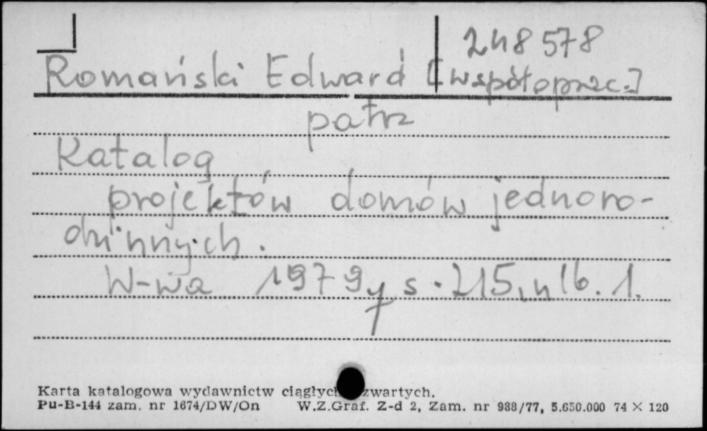 248578
Romański Edward [współoprac.]
patrz
Katalog
projektów domów jednoro-
dzinnych.
W-wa 1979, s. 215, nlb. 1.
Karta katalogowa wydawnictw ciągłych zwartych.
Pu-B-144 zam. nr 1674/DW/On W.Z.Graf. Z-d 2, Zam. nr 988/77, 5.650.000 74 × 120